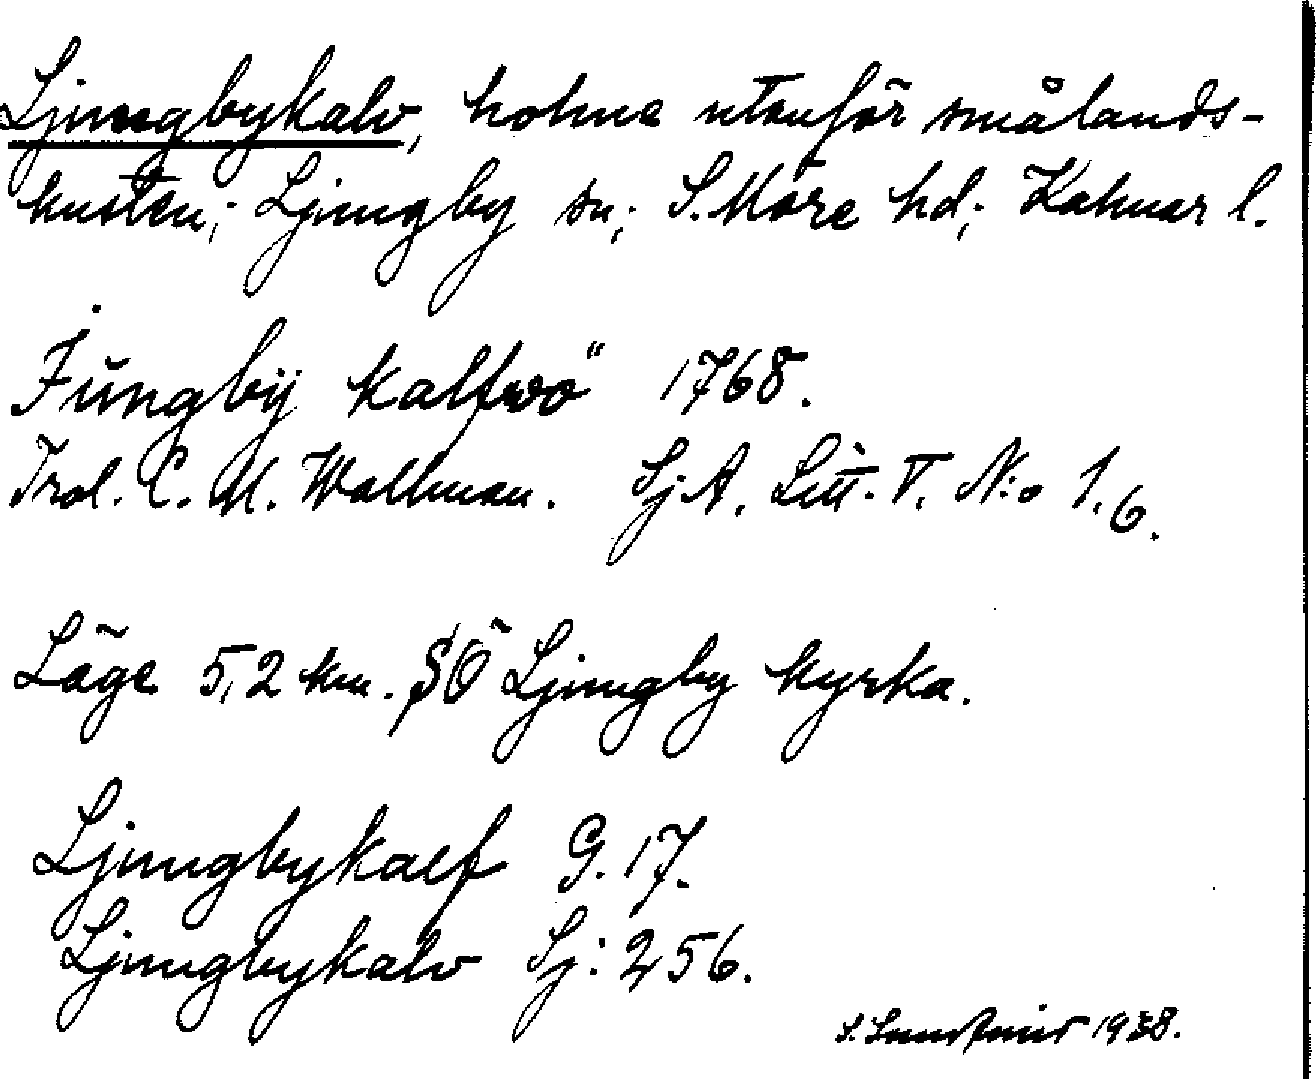 Ljungbykalv, holme utanför smålands-
kusten; Ljungby sn; S. Möre hd; Kalmar l.
Jŭngbÿ kalfwö 1768.
Trol. C. M. Wallman. Sj A. Litt. V. N:o 1.6.
Läge 5,2 km. SÖ Ljungby kyrka.
Ljungbykalf G. 17.
Ljungbykalv Sj: 256.
S. 1938.